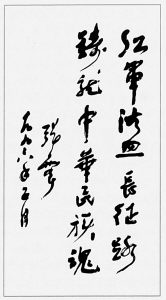 红军浴血长征路
铸就中华民族魂
张震
一九九六年三月